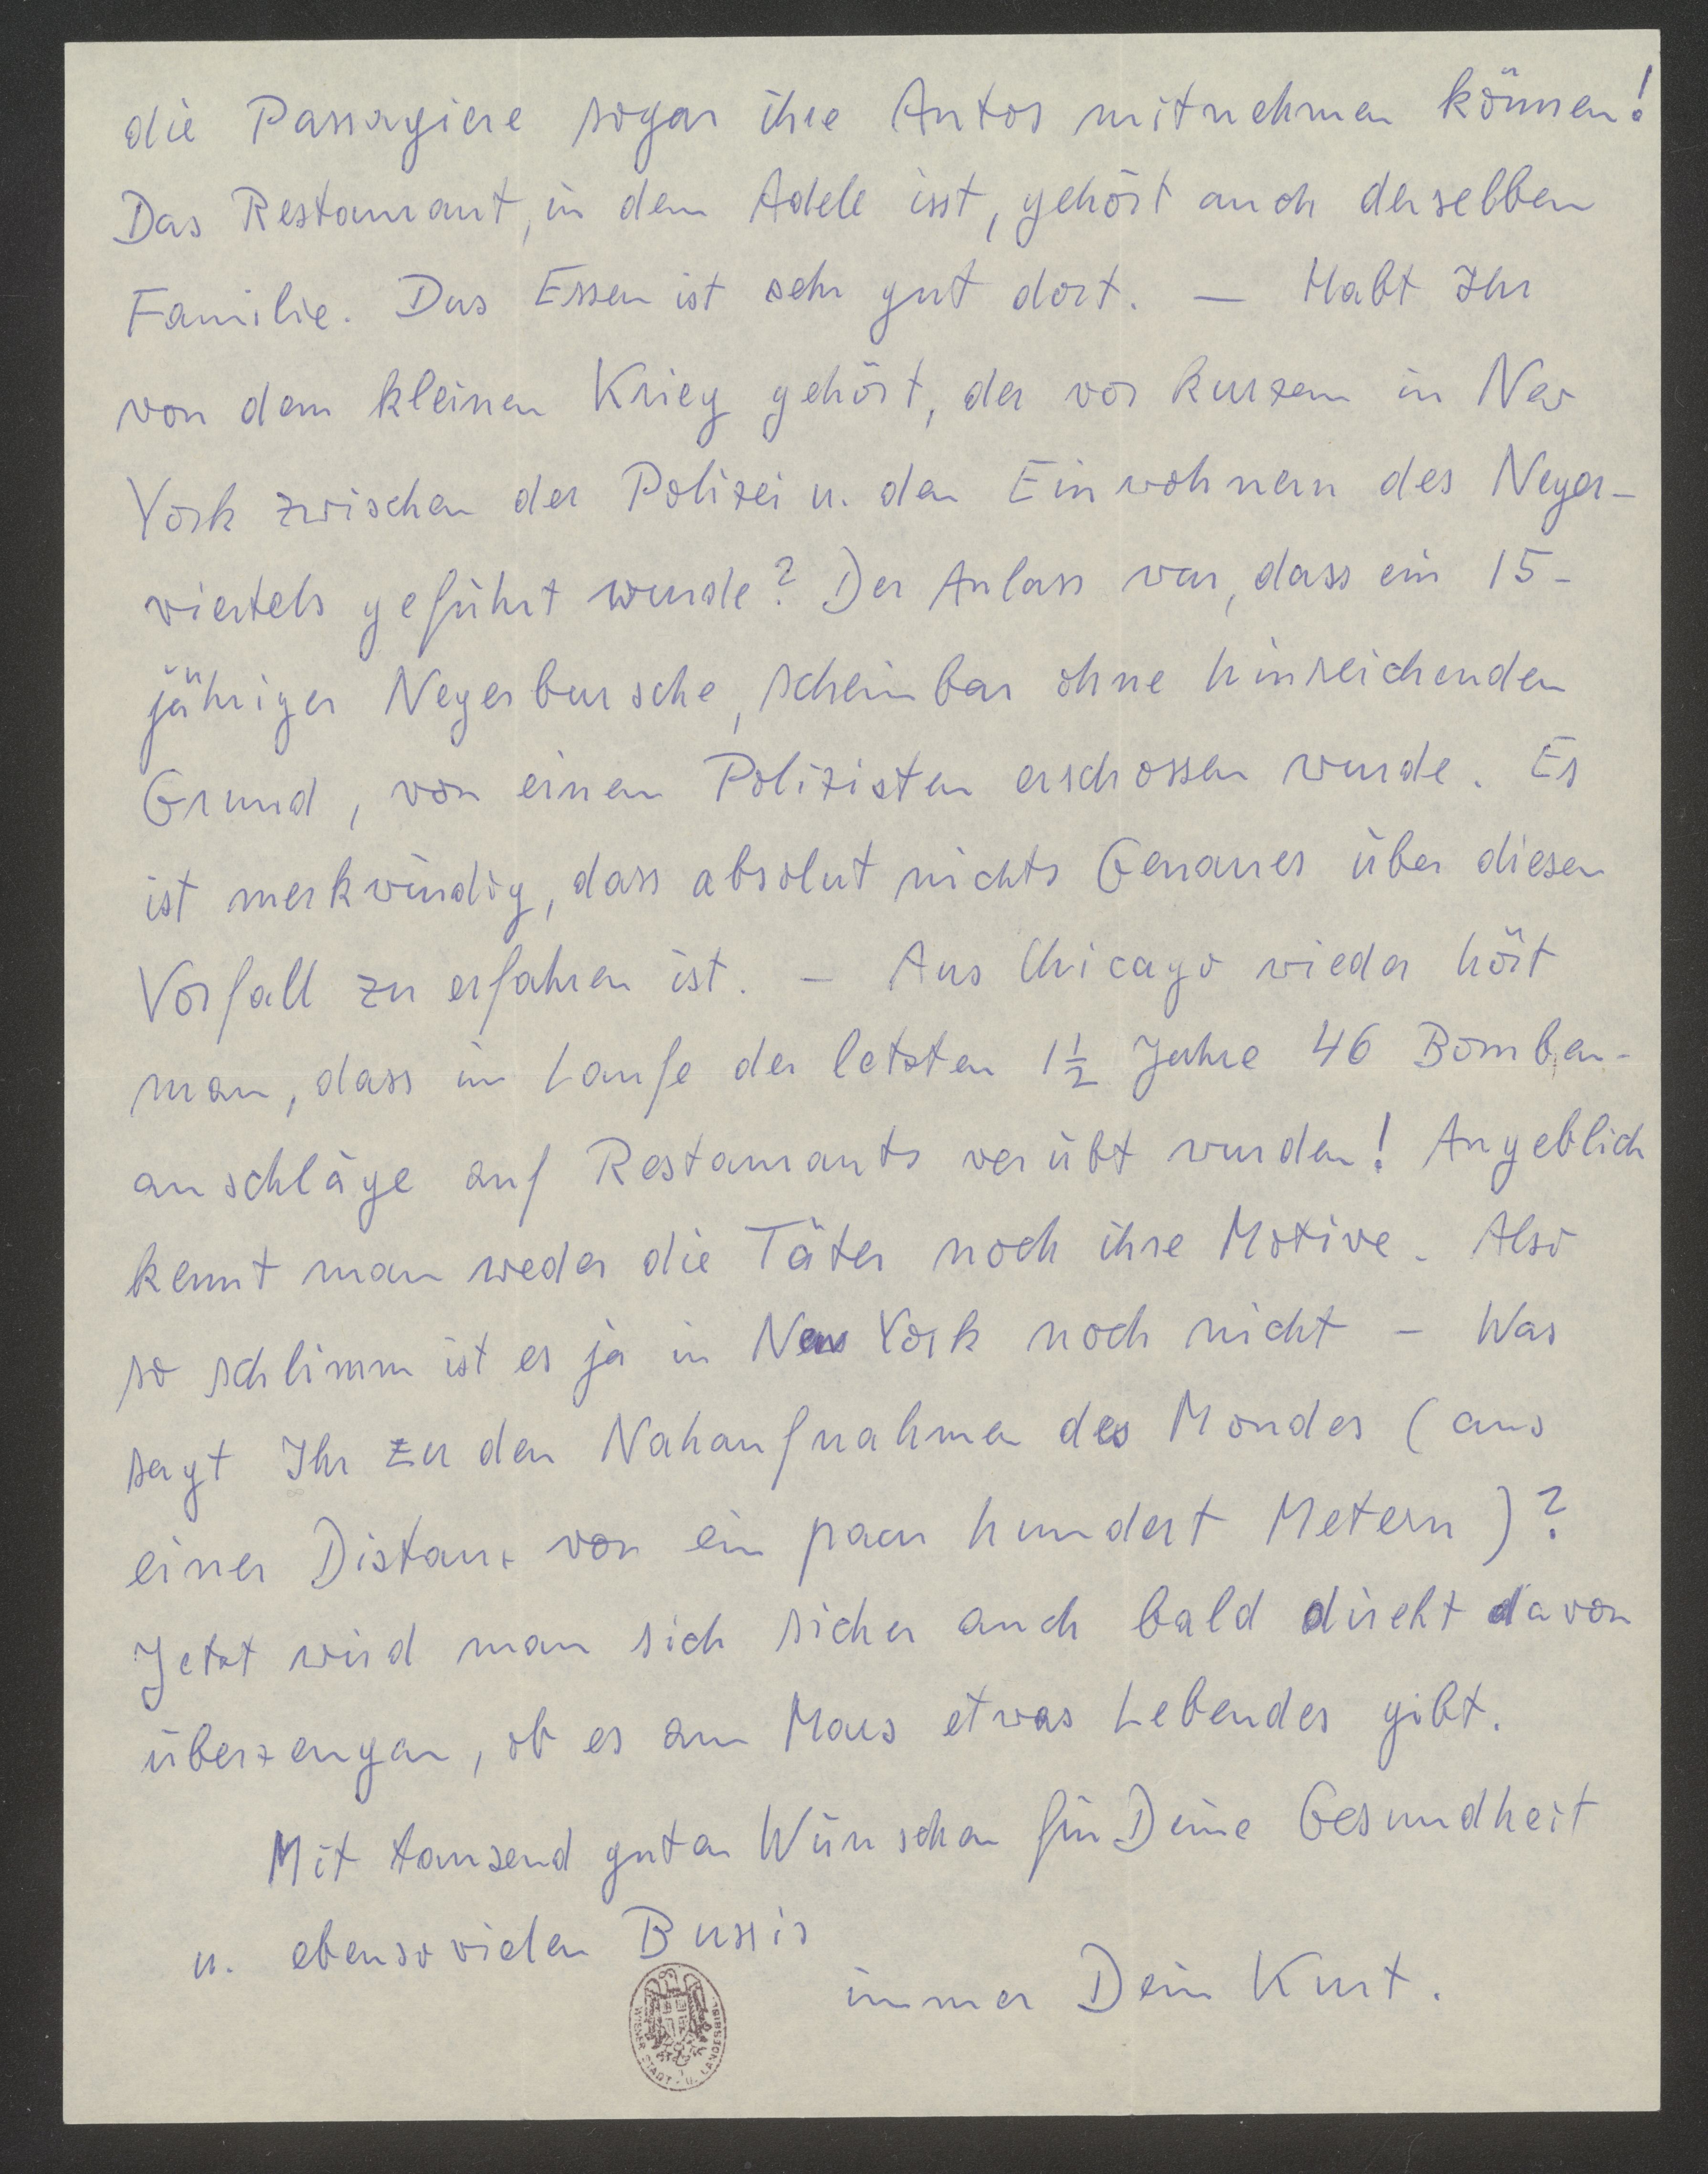 die Passagiere sogar ihre Autos mitnehmen können!
Das Restaurant, in dem Adele isst, gehört auch derselben
Familie. Das Essen ist sehr gut dort. — Habt Ihr
von dem kleinen Krieg gehört, der vor kurzem in New
York zwischen der Polizei u. den Einwohnern des Neger-
viertels geführt wurde? Der Anlass war, dass ein 15-
jähriger Negerbursche, scheinbar ohne hinreichenden
Grund, von einem Polizisten erschossen wurde. Es
ist merkwürdig, dass absolut nichts Genaues über diesen
Vorfall zu erfahren ist. – Aus Chicago wieder hört
man, dass im Laufe der letzten 1½ Jahre 46 Bomben-
anschläge auf Restaurants verübt wurden! Angeblich
kennt man weder die Täter noch ihre Motive. Also
so schlimm ist es ja in New York noch nicht – Was
sagt Ihr zu den Nahaufnahmen des Mondes (aus
einer Distanz von ein paar hundert Metern)?
Jetzt wird man sich sicher auch bald direkt davon
überzeugen, ob es am Mars etwas Lebendes gibt.
Mit tausend guten Wünschen für Deine Gesundheit
u. ebensovielen Bussis
immer Dein Kurt.
WIENER STADT- U. LANDESBIBL.